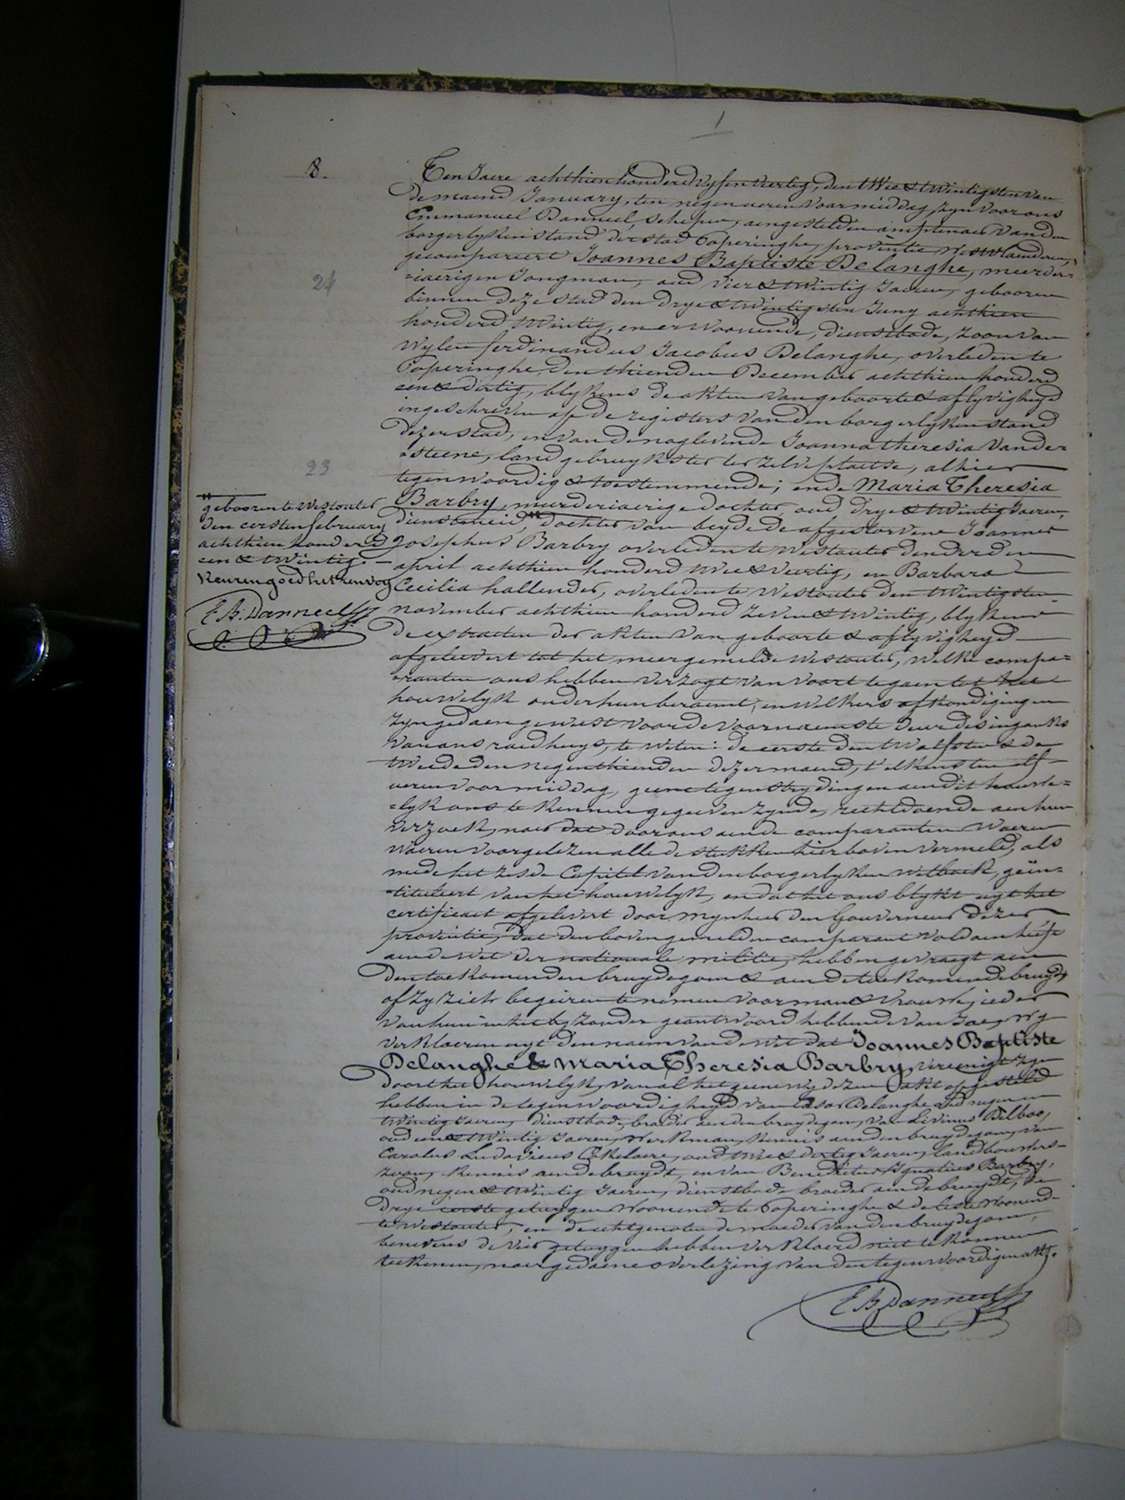 1
8.
Ten Jaere achthien honderd vyf en veertig, den twee & twintigsten van
de maend January, ten negen ueren voormiddag, zyn voor ons
Emmanuel Danneel, schepen, aengestelden amptenaer van den
borgerlyken stand der stad Poperinghe, provintie Westvlaenderen,
gecompareert Joannes Baptiste Delanghe, meerder-
=iaerigen Jongman, oud vier & twintig Jaeren, gebooren
binnen deze stad den drye & twintigsten Juny achthien
honderd twintig, en er woonende, dienstbode, zoon van
wylen ferdinandus Jacobus Delanghe, overleden te
Poperinghe, den thienden December achthien honderd
een & dertig, blykens de akten van geboorte & aflyvigheyd
ingeschreven op de registers van den borgerlyken stand
dezer stad, en van de naglevende Joanna theresia Vander-
=steene, landgebruykster ter zelve plaetse, alhier
tegenwoordig & toestemmende; ende Maria Theresia
Barbry, meerderiaerige dochter, oud drye & twintig Jaeren,
dienstmeid, dochter van beyde de afgestorvene Joannes
Josephus Barbry overleden te Westouter den derden
april achthien honderd twee & veertig, en Barbara
Cecilia hallender, overleden te Westouter den twintigsten
november achthien honderd zeven & twintig, blykens
de extracten der akten van geboorte & aflyvigheyd
afgeleevert tot het meergemelde Westouter, welke compa-
=ranten ons hebben verzogt van voort te gaen tot het
houwelyk onder hun beraemt, en welkers afkondigingen
zyn gedaen geweest voor de voornaemste deur des ingangs
van ons raedhuys, te weten: de eerste den twalfsten & de
tweede den negenthienden dezer maend, t'elkens ten elf
ueren voormiddag, geene tegenstrydingen aen dit houwe-
=lyk ons te kennen gegeeven zynde, rechtdoende aen hun
verzoek, naer dat door ons aen de comparanten waeren
waeren voorgelezen alle de stukken hier boven vermeld, als
mede het zesde Capitel van den borgerlyken wetboek, geïn-
=tituleert van het houwelyk, en dat het ons blykt uyt het
certificaet afgelevert door mynheer den Gouverneur dezer
provintie, dat den bovengemelden comparant voldaen heeft
aen de Wet der nationale militie, hebben gevraegt aen
den toekomenden bruydegom & aen de toekomende bruyd,
of zy zich begeiren te nemen voor man & vrouw; ieder
van hun in het byzonder geantwoord hebbende van Jae, wy
verklaeren uyt den naem van de wet dat Joannes Baptiste
Delanghe & Maria Theresia Barbry, vereenigt zyn
door het houwelyk, van al het geene wy dezen akt opgesteld
hebben in de tegenwoordigheyd van Delanghe oud negen en
twintig Jaeren, dienstbode, broeder aen den bruydegom, van Livinus Delboo,
oud een & twintig Jaeren, werkman, kennis aen den bruydegom, van
Carolus Ludovicus Cokelaere, oud twee & dertig Jaeren, landbouwers-
zoon, kennis aen de bruydt, en van Benedictus Ignatius Barbry,
oud negen & twintig Jaeren, dienstbode broeder aen de bruydt, de
drye eerste getuygen woonende te Poperinghe & de leste woonende
te Westouter, en de echtgenoten de moeder van den bruydegom,
benevens de vier getuygen hebben verklaerd niet te konnen
teekenen, naer gedaene overlezing van den tegenwoordigen akt.
E. B. Danneel
24
23
gebooren te Westouter
den eersten february
achthien honderd
een & twintig.
Keuren goed het renvoy
E. B. Danneel